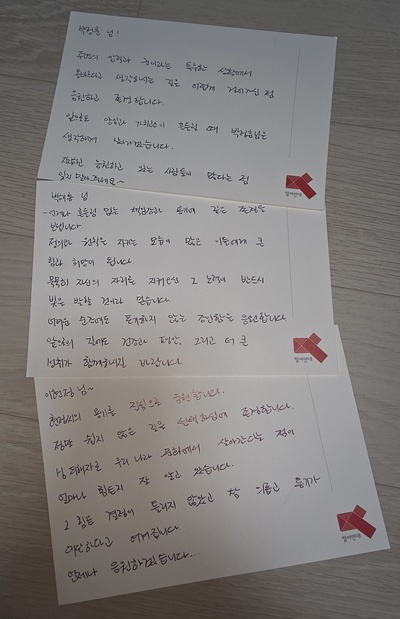 박정훈 님!
주변의 압력과 군이라는 특수한 상황에서
옳바르다고 생각하시는 길을 이렇게 걸어가신 점
응원하고 존경합니다.
앞으로도 양심과 가치관이 흔들릴 때 박정훈님을
생각하며 살아가겠습니다.
지지하고 응원하고 있는 사람들이 많다는 점
잊지 말아주세요~
참여연대
님
언제나 흔들림 없는 책임감과 용기에 깊은 존경을
보냅니다
정의와 원칙을 지키는 모습이 많은 이들에게 큰
힘과 희망이 됩니다.
묵묵히 자신의 자리를 지켜오신 그 노력이 반드시
빛을 발할 것이라 믿습니다
어려운 순간에도 포기하지 않는 강인함을 응원합니다
앞으로의 길에도 건강과 평안, 그리고 더 큰
성취가 함께하시길 바랍니다
참여연대
님~
용기를 진심으로 응원합니다.
정말 쉽지 않은 길을 선택하심에 존경합니다.
피해자로 우리 나라 문화에서 살아간다는 점이
얼마나 힘든지 잘 알고 있습니다.
그 힘든 결정이 틀리지 않았고 참 의롭고 용기가
대단하다고 여겨집니다.
언제나 응원하겠습니다...
참여연대